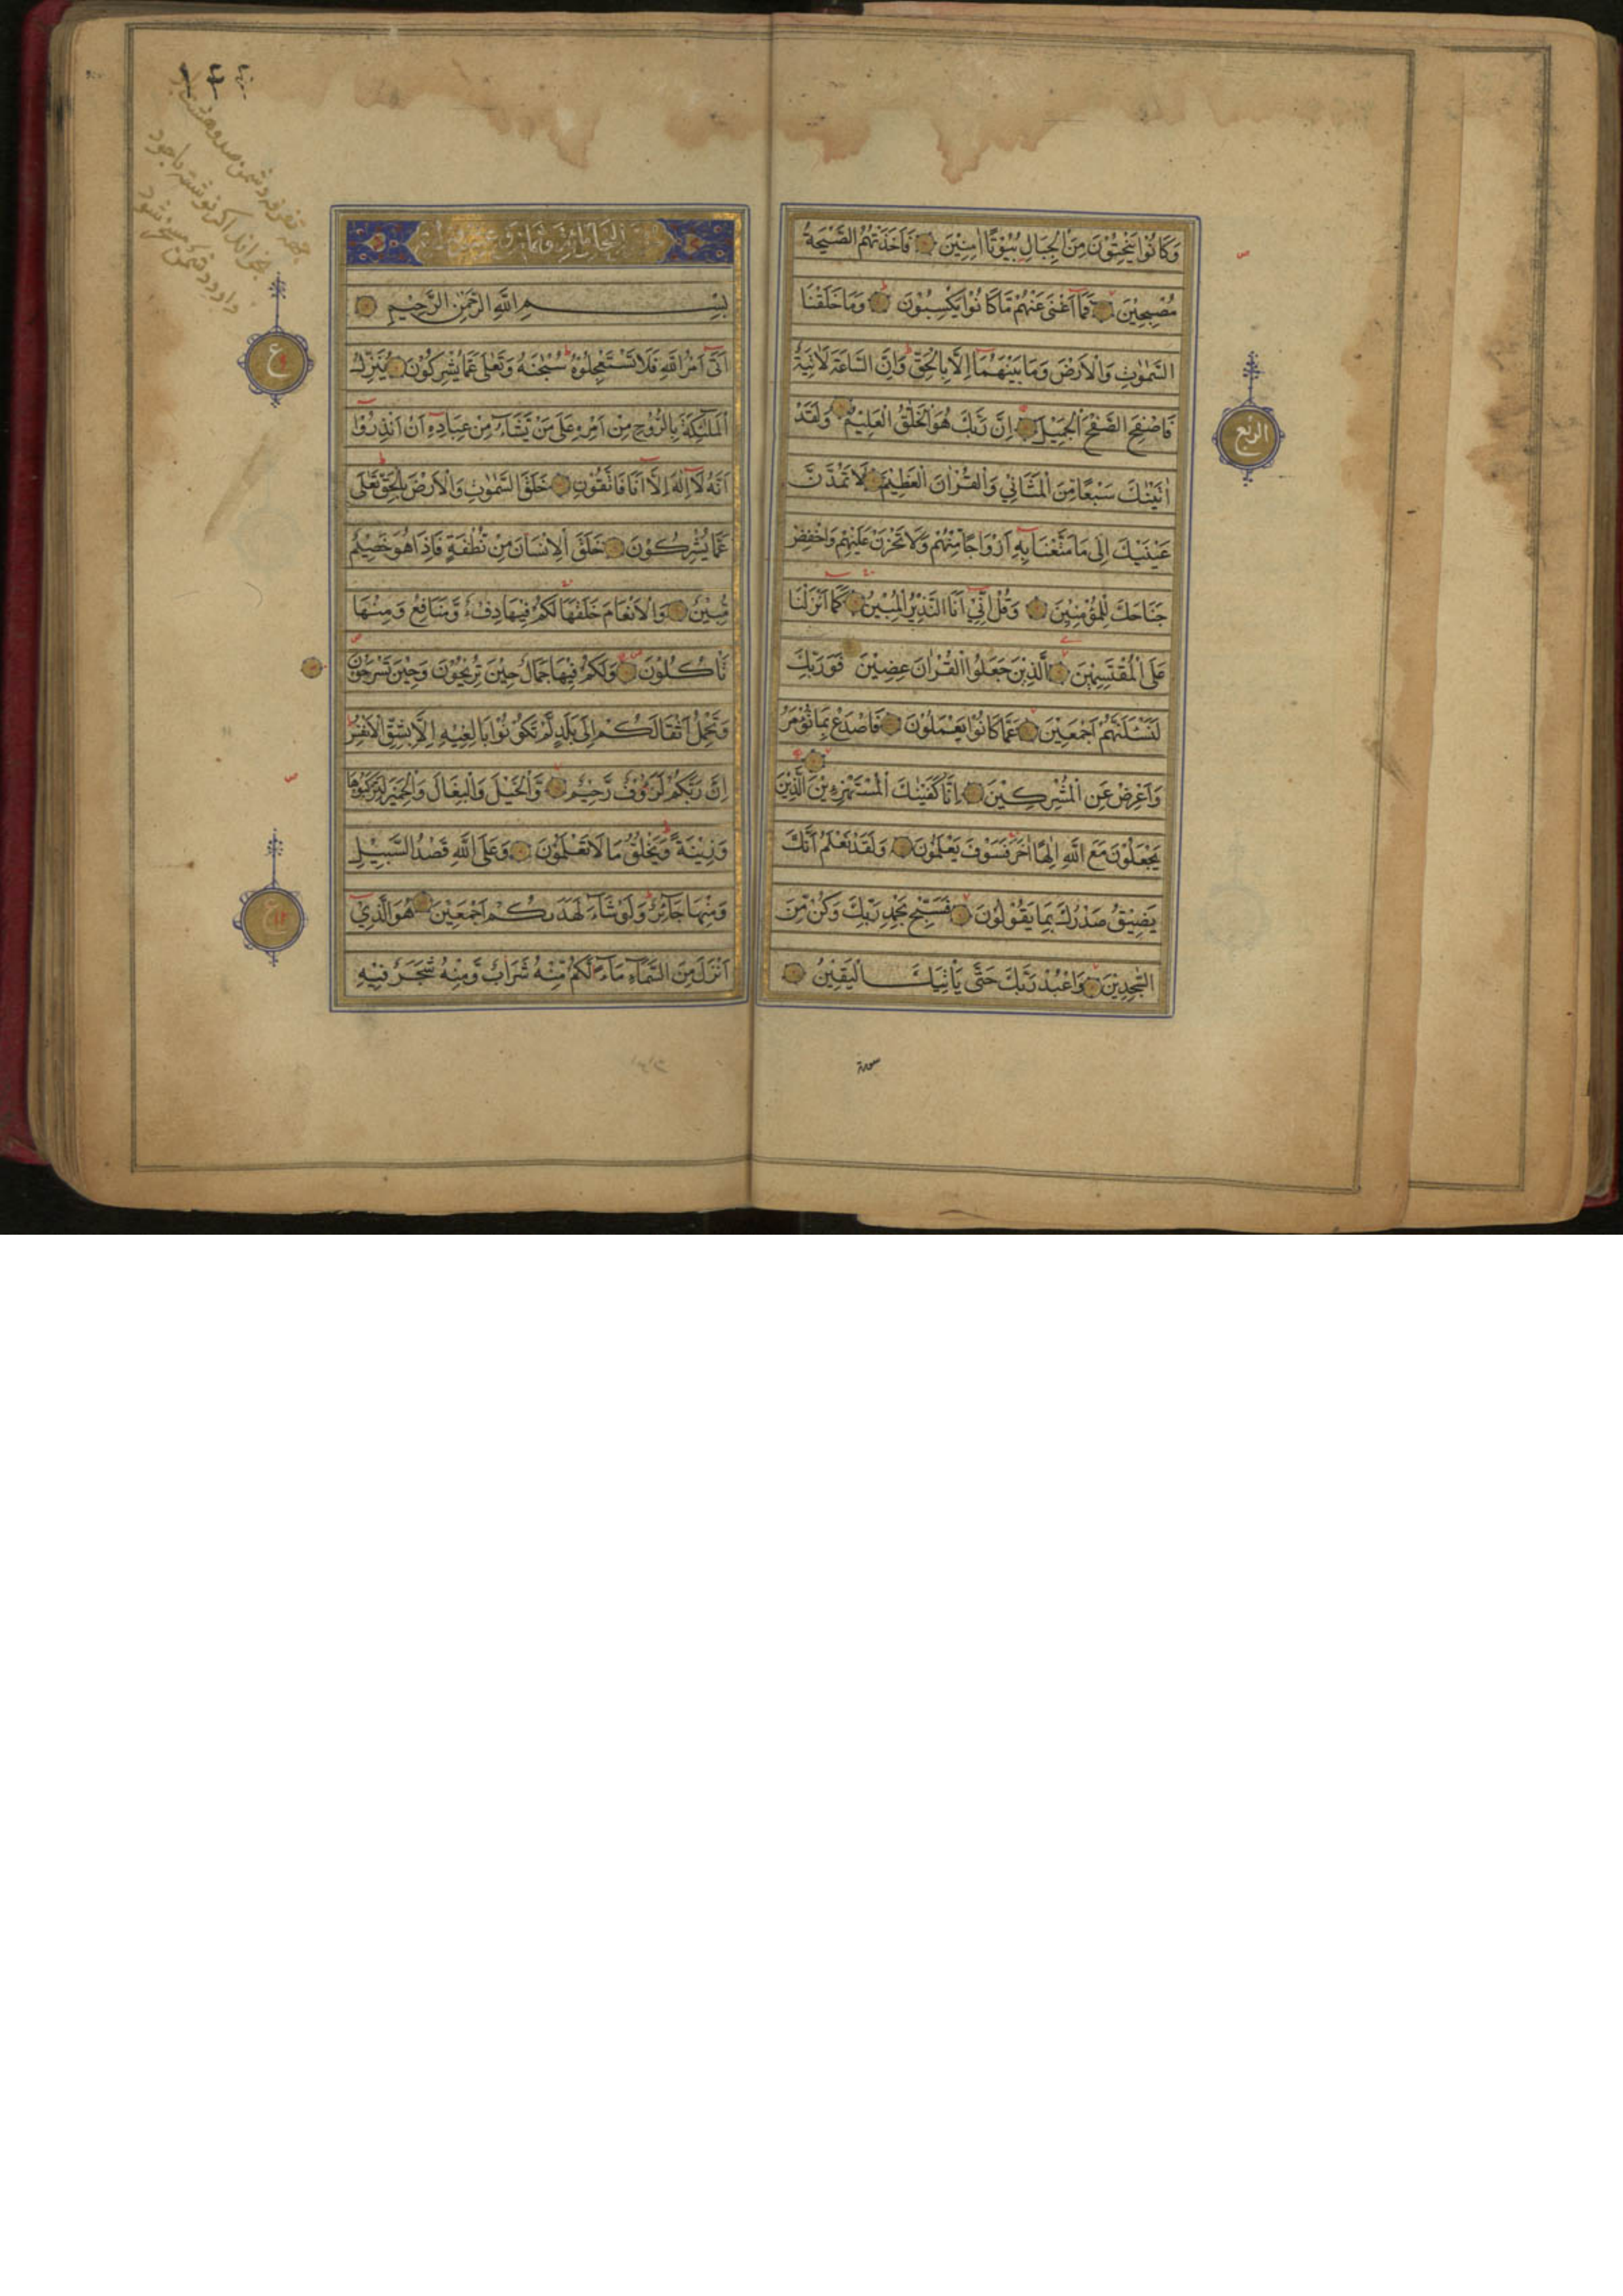 وَكَانُوْا يَنْحِتُوْنَ مِنَ الْجِبَالِ بُيُوْتًا اٰمِنِيْنَ فَاَخَذَتْهُمُ الصَّيْحَةُ
مُصْبِحِيْنَ فَمَآ اَغْنٰى عَنْهُمْ مَّا كَانُوْا يَكْسِبُوْنَ وَمَا خَلَقْنَا
السَّمٰوٰتِ وَالْاَرْضَ وَمَا بَيْنَهُمَآ اِلَّا بِالْحَقِّ وَاِنَّ السَّاعَةَ لَاٰتِيَةٌ
فَاصْفَحِ الصَّفْحَ الْجَمِيْلَ اِنَّ رَبَّكَ هُوَ الْخَلّٰقُ الْعَلِيْمُ وَلَقَدْ
اٰتَيْنٰكَ سَبْعًا مِّنَ الْمَثَانِيْ وَالْقُرْاٰنَ الْعَظِيْمَ لَا تَمُدَّنَّ
عَيْنَيْكَ اِلٰى مَا مَتَّعْنَا بِهٖٓ اَزْوَاجًا مِّنْهُمْ وَلَا تَحْزَنْ عَلَيْهِمْ وَاخْفِضْ
جَنَاحَكَ لِلْمُؤْمِنِيْنَ وَقُلْ اِنِّيْٓ اَنَا النَّذِيْرُ الْمُبِيْنُ كَمَآ اَنْزَلْنَا
عَلَى الْمُقْتَسِمِيْنَ الَّذِيْنَ جَعَلُوا الْقُرْاٰنَ عِضِيْنَ فَوَرَبِّكَ
لَنَسْـَٔلَنَّهُمْ اَجْمَعِيْنَ عَمَّا كَانُوْا يَعْمَلُوْنَ فَاصْدَعْ بِمَا تُؤْمَرُ
وَاَعْرِضْ عَنِ الْمُشْرِكِيْنَ اِنَّا كَفَيْنٰكَ الْمُسْتَهْزِءِيْنَ الَّذِيْنَ
يَجْعَلُوْنَ مَعَ اللّٰهِ اِلٰهًا اٰخَرَ فَسَوْفَ يَعْلَمُوْنَ وَلَقَدْ نَعْلَمُ اَنَّكَ
يَضِيْقُ صَدْرُكَ بِمَا يَقُوْلُوْنَ فَسَبِّحْ بِحَمْدِ رَبِّكَ وَكُنْ مِّنَ
السّٰجِدِيْنَ وَاعْبُدْ رَبَّكَ حَتّٰى يَاْتِيَكَ الْيَقِيْنُ
الربع
سورة
بِسْمِ اللّٰهِ الرَّحْمٰنِ الرَّحِيْمِ
اَتٰٓى اَمْرُ اللّٰهِ فَلَا تَسْتَعْجِلُوْهُ سُبْحٰنَهٗ وَتَعٰلٰى عَمَّا يُشْرِكُوْنَ يُنَزِّلُ
الْمَلٰٓئِكَةَ بِالرُّوْحِ مِنْ اَمْرِهٖ عَلٰى مَنْ يَّشَآءُ مِنْ عِبَادِهٖٓ اَنْ اَنْذِرُوْٓا
اَنَّهٗ لَآ اِلٰهَ اِلَّآ اَنَا فَاتَّقُوْنِ خَلَقَ السَّمٰوٰتِ وَالْاَرْضَ بِالْحَقِّ تَعٰلٰى
عَمَّا يُشْرِكُوْنَ خَلَقَ الْاِنْسَانَ مِنْ نُّطْفَةٍ فَاِذَا هُوَ خَصِيْمٌ
مُّبِيْنٌ وَالْاَنْعَامَ خَلَقَهَا لَكُمْ فِيْهَا دِفْءٌ وَّمَنَافِعُ وَمِنْهَا
تَاْكُلُوْنَ وَلَكُمْ فِيْهَا جَمَالٌ حِيْنَ تُرِيْحُوْنَ وَحِيْنَ تَسْرَحُوْنَ
وَتَحْمِلُ اَثْقَالَكُمْ اِلٰى بَلَدٍ لَّمْ تَكُوْنُوْا بَالِغِيْهِ اِلَّا بِشِقِّ الْاَنْفُسِ
اِنَّ رَبَّكُمْ لَرَءُوْفٌ رَّحِيْمٌ وَّالْخَيْلَ وَالْبِغَالَ وَالْحَمِيْرَ لِتَرْكَبُوْهَا
وَزِيْنَةً وَيَخْلُقُ مَا لَا تَعْلَمُوْنَ وَعَلَى اللّٰهِ قَصْدُ السَّبِيْلِ
وَمِنْهَا جَآئِرٌ وَلَوْ شَآءَ لَهَدٰىكُمْ اَجْمَعِيْنَ هُوَ الَّذِيْٓ
اَنْزَلَ مِنَ السَّمَآءِ مَآءً لَّكُمْ مِّنْهُ شَرَابٌ وَّمِنْهُ شَجَرٌ فِيْهِ
ع
ع